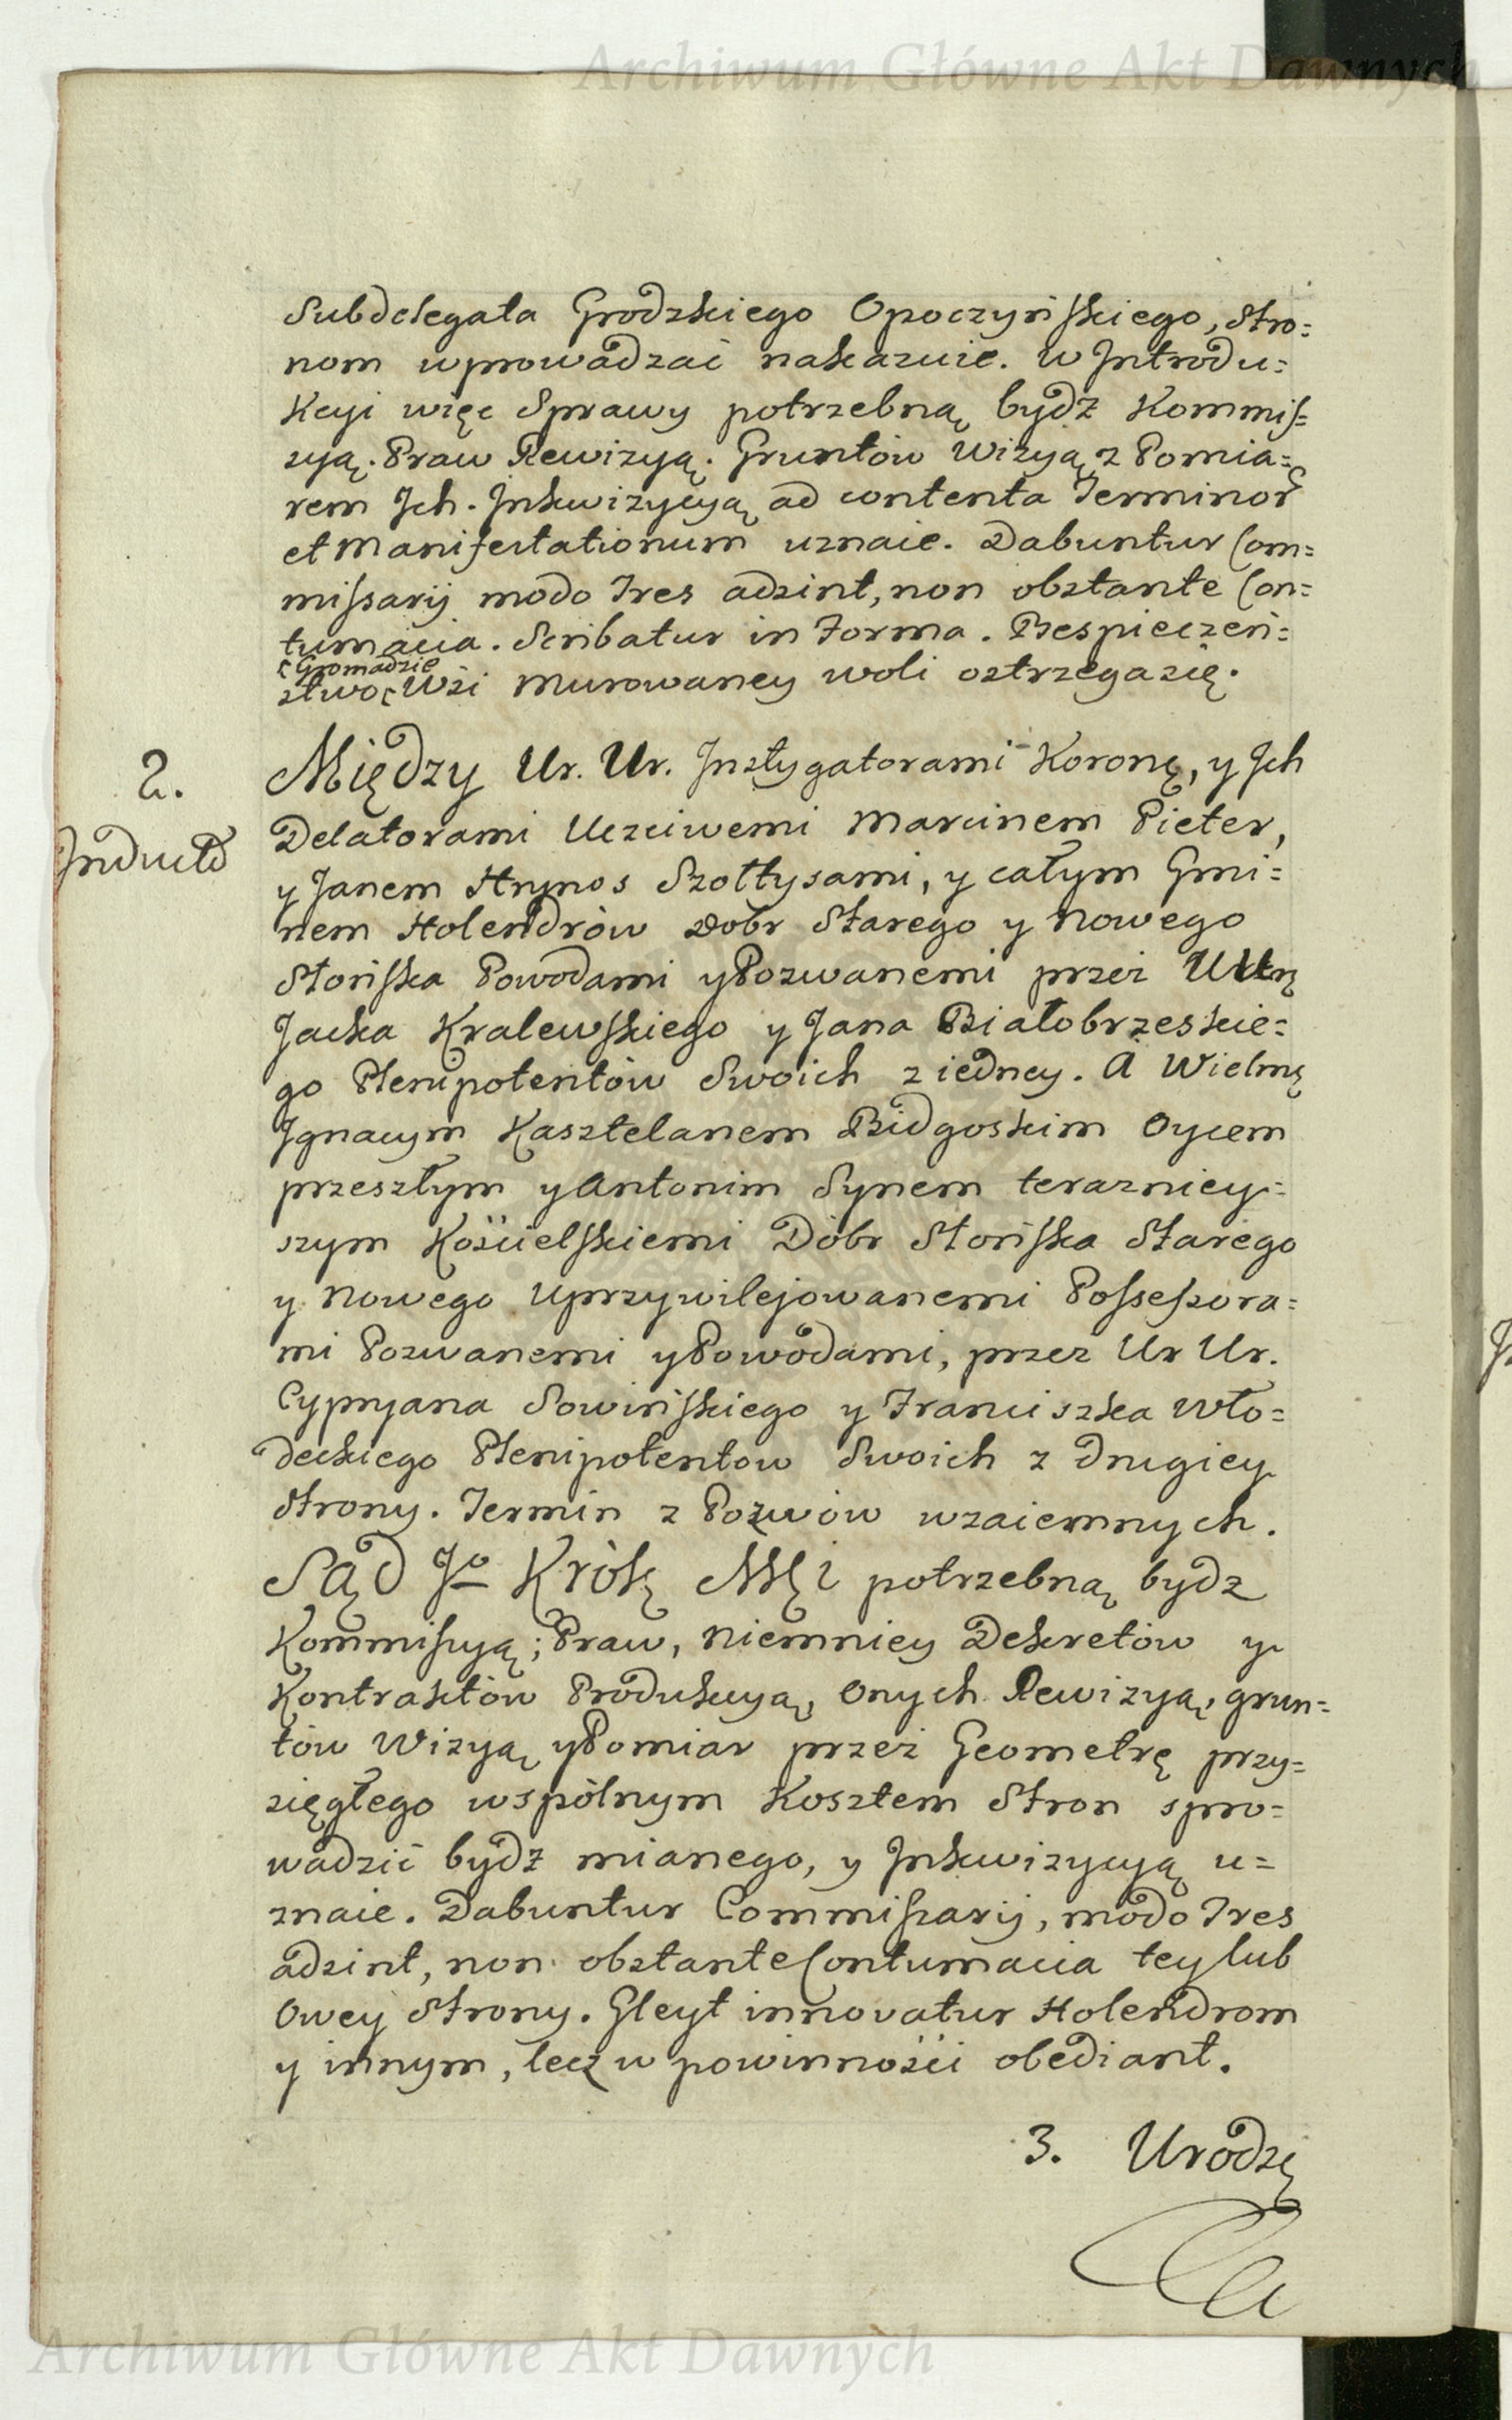 Archiwum Główne Akt Dawnych
Subdelegata Grodzkiego Opoczyńskiego, Stro=
nom wprowadzać nakazuie. W Introdu=
kcyi więc Sprawy potrzebną bydź Kommis=
syą. Praw Rewizyą. Gruntów Wizyą z Pomia=
rem Ich. Inkwizycyą ad contenta Terminor
et Manifestationum uznaie. Dabuntur Com=
missarij modo Tres adsint, non obstante Con=
tumacia. Scribatur in Forma. Bespieczeń=
Gromadzie
stwo Wsi Murowaney woli ostrzega się.
2.
Między Ur. Ur. Instygatorami Koronę, y Ich
Delatorami Uczciwemi Marcinem Pieter,
y Janem Hrynos Szołtysami, y całym Gmi=
nem Holendrów Dobr Starego y Nowego
Słońska Powodami y Pozwanemi przez
Jacka Kralewskiego y Jana Białobrzeskie=
go Plenipotentów Swoich z iedney. A Wielmę
Ignacym Kasztelanem Bidgoskim Oycem
przeszłym y Antonim Synem terazniey=
szym Kościelskiemi Dóbr Słońska Starego
y Nowego Uprzywilejowanemi Possessora=
mi Pozwanemi y Powodami, przez Ur Ur.
Cypryana Sowińskiego y Franciszka Wło=
deckiego Plenipotentow Swoich z Drugiey
Strony. Termin z Pozwów wzaiemnych.
Sąd Jo Królę Mci potrzebną bydz
Kommissyą; Praw, Niemniey Dekretów y
Kontraktów Produkcyą, Onych Rewizyą, grun=
tów Wizyą y Pomiar przez Geometrę przy=
sięgłego wspólnym Kosztem Stron spro=
wadzić bydź mianego, y Inkwizycyą u=
znaie. Dabuntur Commissarij, modo Tres
adsint, non obstante Contumacia tey lub
Owey Strony. Gleyt innovatur Holendrom
y innym, lecz w powinności obediant.
3. Urodzę
Archiwum Główne Akt Dawnych